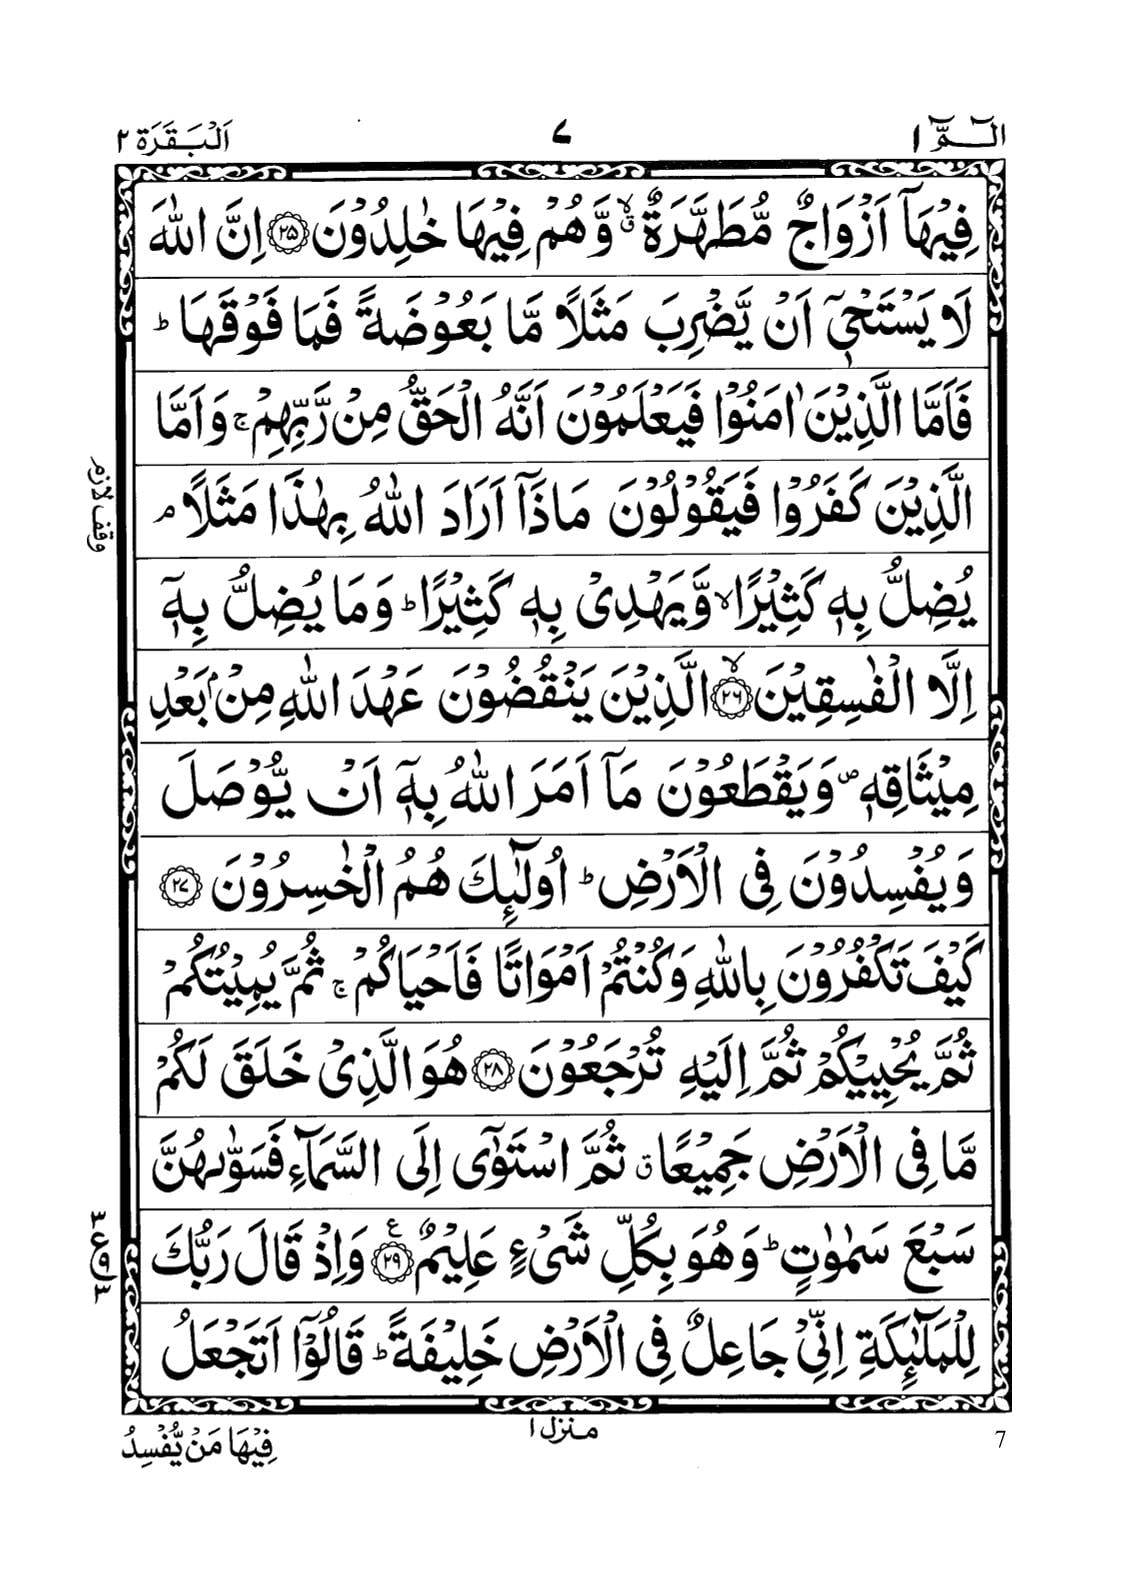 الٓــمّٓ ١
٧
اَلْبَقَرَة ٢
فِيْهَاۤ اَزْوَاجٌ مُّطَهَّرَةٌ ۙۗ وَّهُمْ فِيْهَا خٰلِدُوْنَ ﴿۲۵﴾ اِنَّ اللّٰهَ
لَا يَسْتَحْيٖۤ اَنْ يَّضْرِبَ مَثَلًا مَّا بَعُوْضَةً فَمَا فَوْقَهَا ؕ
فَاَمَّا الَّذِيْنَ اٰمَنُوْا فَيَعْلَمُوْنَ اَنَّهُ الْحَقُّ مِنْ رَّبِّهِمْ ۚ وَاَمَّا
الَّذِيْنَ كَفَرُوْا فَيَقُوْلُوْنَ مَاذَاۤ اَرَادَ اللّٰهُ بِهٰذَا مَثَلًا ۘ
وقف لازم
يُضِلُّ بِهٖ كَثِيْرًا ۙ وَّيَهْدِىْ بِهٖ كَثِيْرًا ؕ وَمَا يُضِلُّ بِهٖۤ
اِلَّا الْفٰسِقِيْنَ ۙ﴿۲۶﴾ الَّذِيْنَ يَنْقُضُوْنَ عَهْدَ اللّٰهِ مِنْۢ بَعْدِ
مِيْثَاقِهٖ ۪ وَيَقْطَعُوْنَ مَاۤ اَمَرَ اللّٰهُ بِهٖۤ اَنْ يُّوْصَلَ
وَيُفْسِدُوْنَ فِى الْاَرْضِ ؕ اُولٰٓئِكَ هُمُ الْخٰسِرُوْنَ ﴿۲۷﴾
كَيْفَ تَكْفُرُوْنَ بِاللّٰهِ وَكُنْتُمْ اَمْوَاتًا فَاَحْيَاكُمْ ۚ ثُمَّ يُمِيْتُكُمْ
ثُمَّ يُحْيِيْكُمْ ثُمَّ اِلَيْهِ تُرْجَعُوْنَ ﴿۲۸﴾ هُوَ الَّذِىْ خَلَقَ لَكُمْ
مَّا فِى الْاَرْضِ جَمِيْعًا ۗ ثُمَّ اسْتَوٰۤى اِلَى السَّمَآءِ فَسَوّٰىهُنَّ
سَبْعَ سَمٰوٰتٍ ؕ وَهُوَ بِكُلِّ شَىْءٍ عَلِيْمٌ ﴿۲۹﴾ ع وَاِذْ قَالَ رَبُّكَ
٣ ع ٩ ٣
لِلْمَلٰٓئِكَةِ اِنِّىْ جَاعِلٌ فِى الْاَرْضِ خَلِيْفَةً ؕ قَالُوْۤا اَتَجْعَلُ
منزل ١
فِيْهَا مَنْ يُّفْسِدُ
7